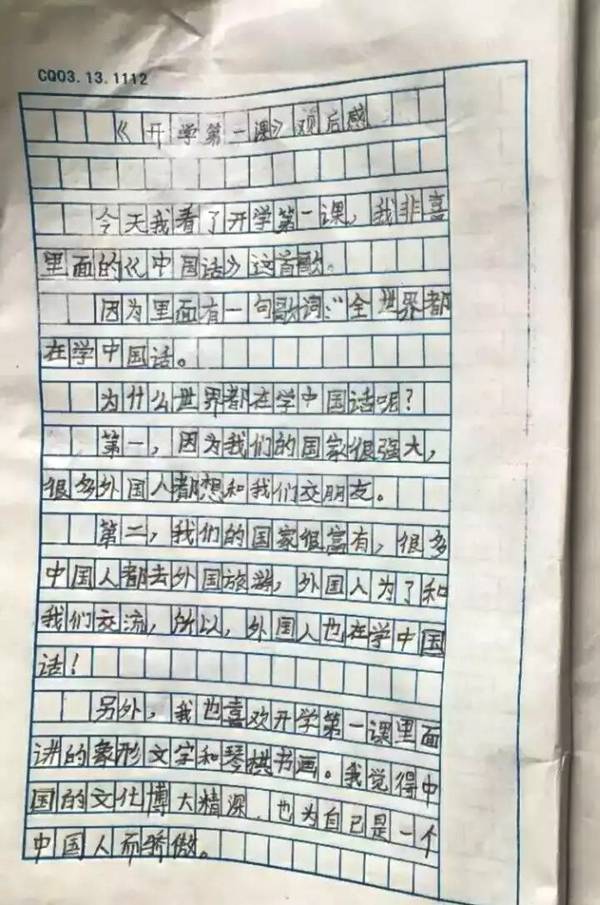 CQ03.13.1112
《开学第一课》观后感
今天我看了开学第一课，我非喜
里面的《中国话》这首歌。
因为里面有一句歌词：“全世界都
在学中国话。
为什么世界都在学中国话呢？
第一，因为我们的国家很强大，
很多外国人都想和我们交朋友。
第二，我们的国家很富有，很多
中国人都去外国旅游，外国人为了和
我们交流，所以，外国人也在学中国
话！
另外，我也喜欢开学第一课里面
讲的象形文字和琴棋书画。我觉得中
国的文化博大精深，也为自己是一个
中国人而骄傲。